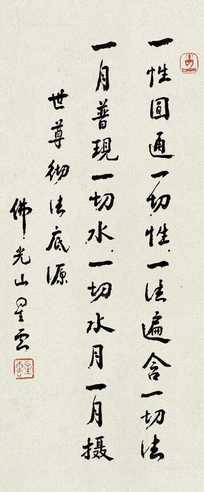 一性圓通一切性、一法遍含一切法
一月普現一切水、一切水月一月摄
世尊彻法底源
佛光山星云